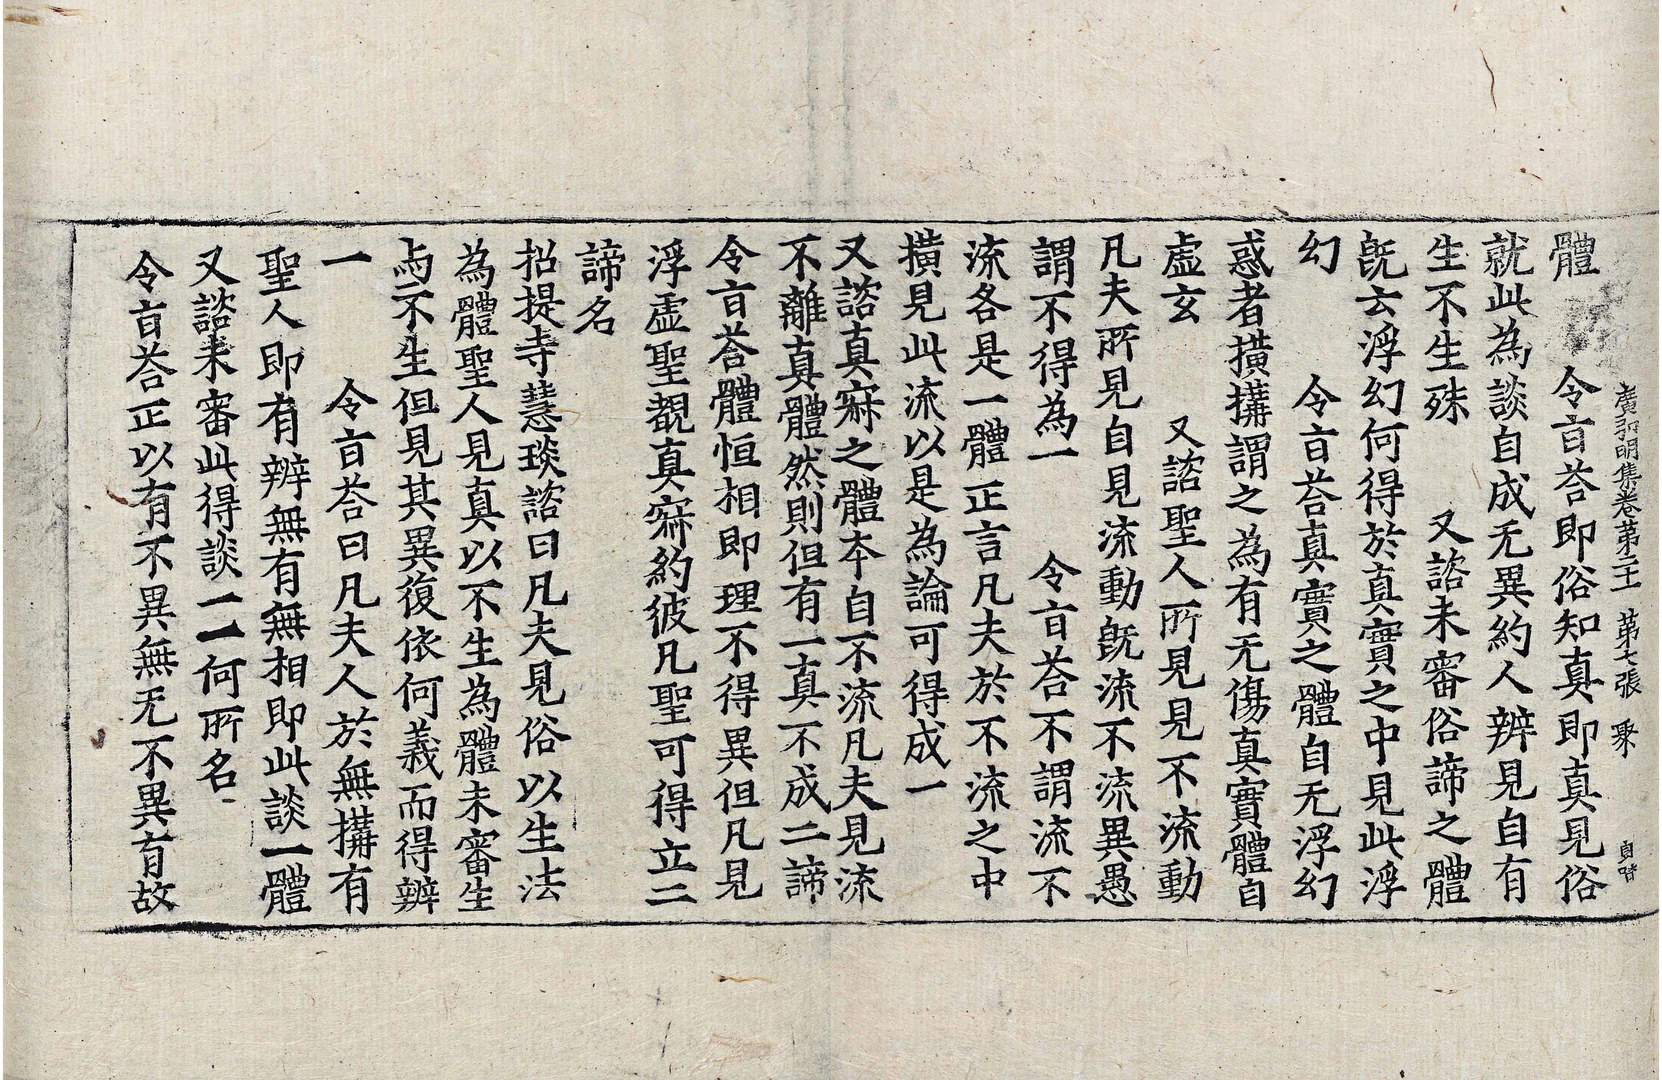 廣弘明集卷第二十一 第七張 聚
體 令旨荅即俗知真即真見俗
就此為談自成无異約人辨見自有
生不生殊 又諮未審俗諦之體
旣云浮幻何得於真實之中見此浮
幻 令旨荅真實之體自无浮幻
惑者撗搆謂之為有无傷真實體自
虛玄 又諮聖人所見見不流動
凡夫所見自見流動旣流不流異愚
謂不得為一 令旨荅不謂流不
流各是一體正言凡夫於不流之中
撗見此流以是為論可得成一
又諮真寂之體本自不流凡夫見流
不離真體然則但有一真不成二諦
令旨荅體恒相即理不得異但凡見
浮虛聖覩真寂約彼凡聖可得立二
諦名
招提寺慧琰諮曰凡夫見俗以生法
為體聖人見真以不生為體未審生
与不生但見其異復依何義而得辨
一 令旨荅曰凡夫人於無搆有
聖人即有辨無有無相即此談一體
又諮未審此得談一一何所名
令旨荅正以有不異無无不異有故